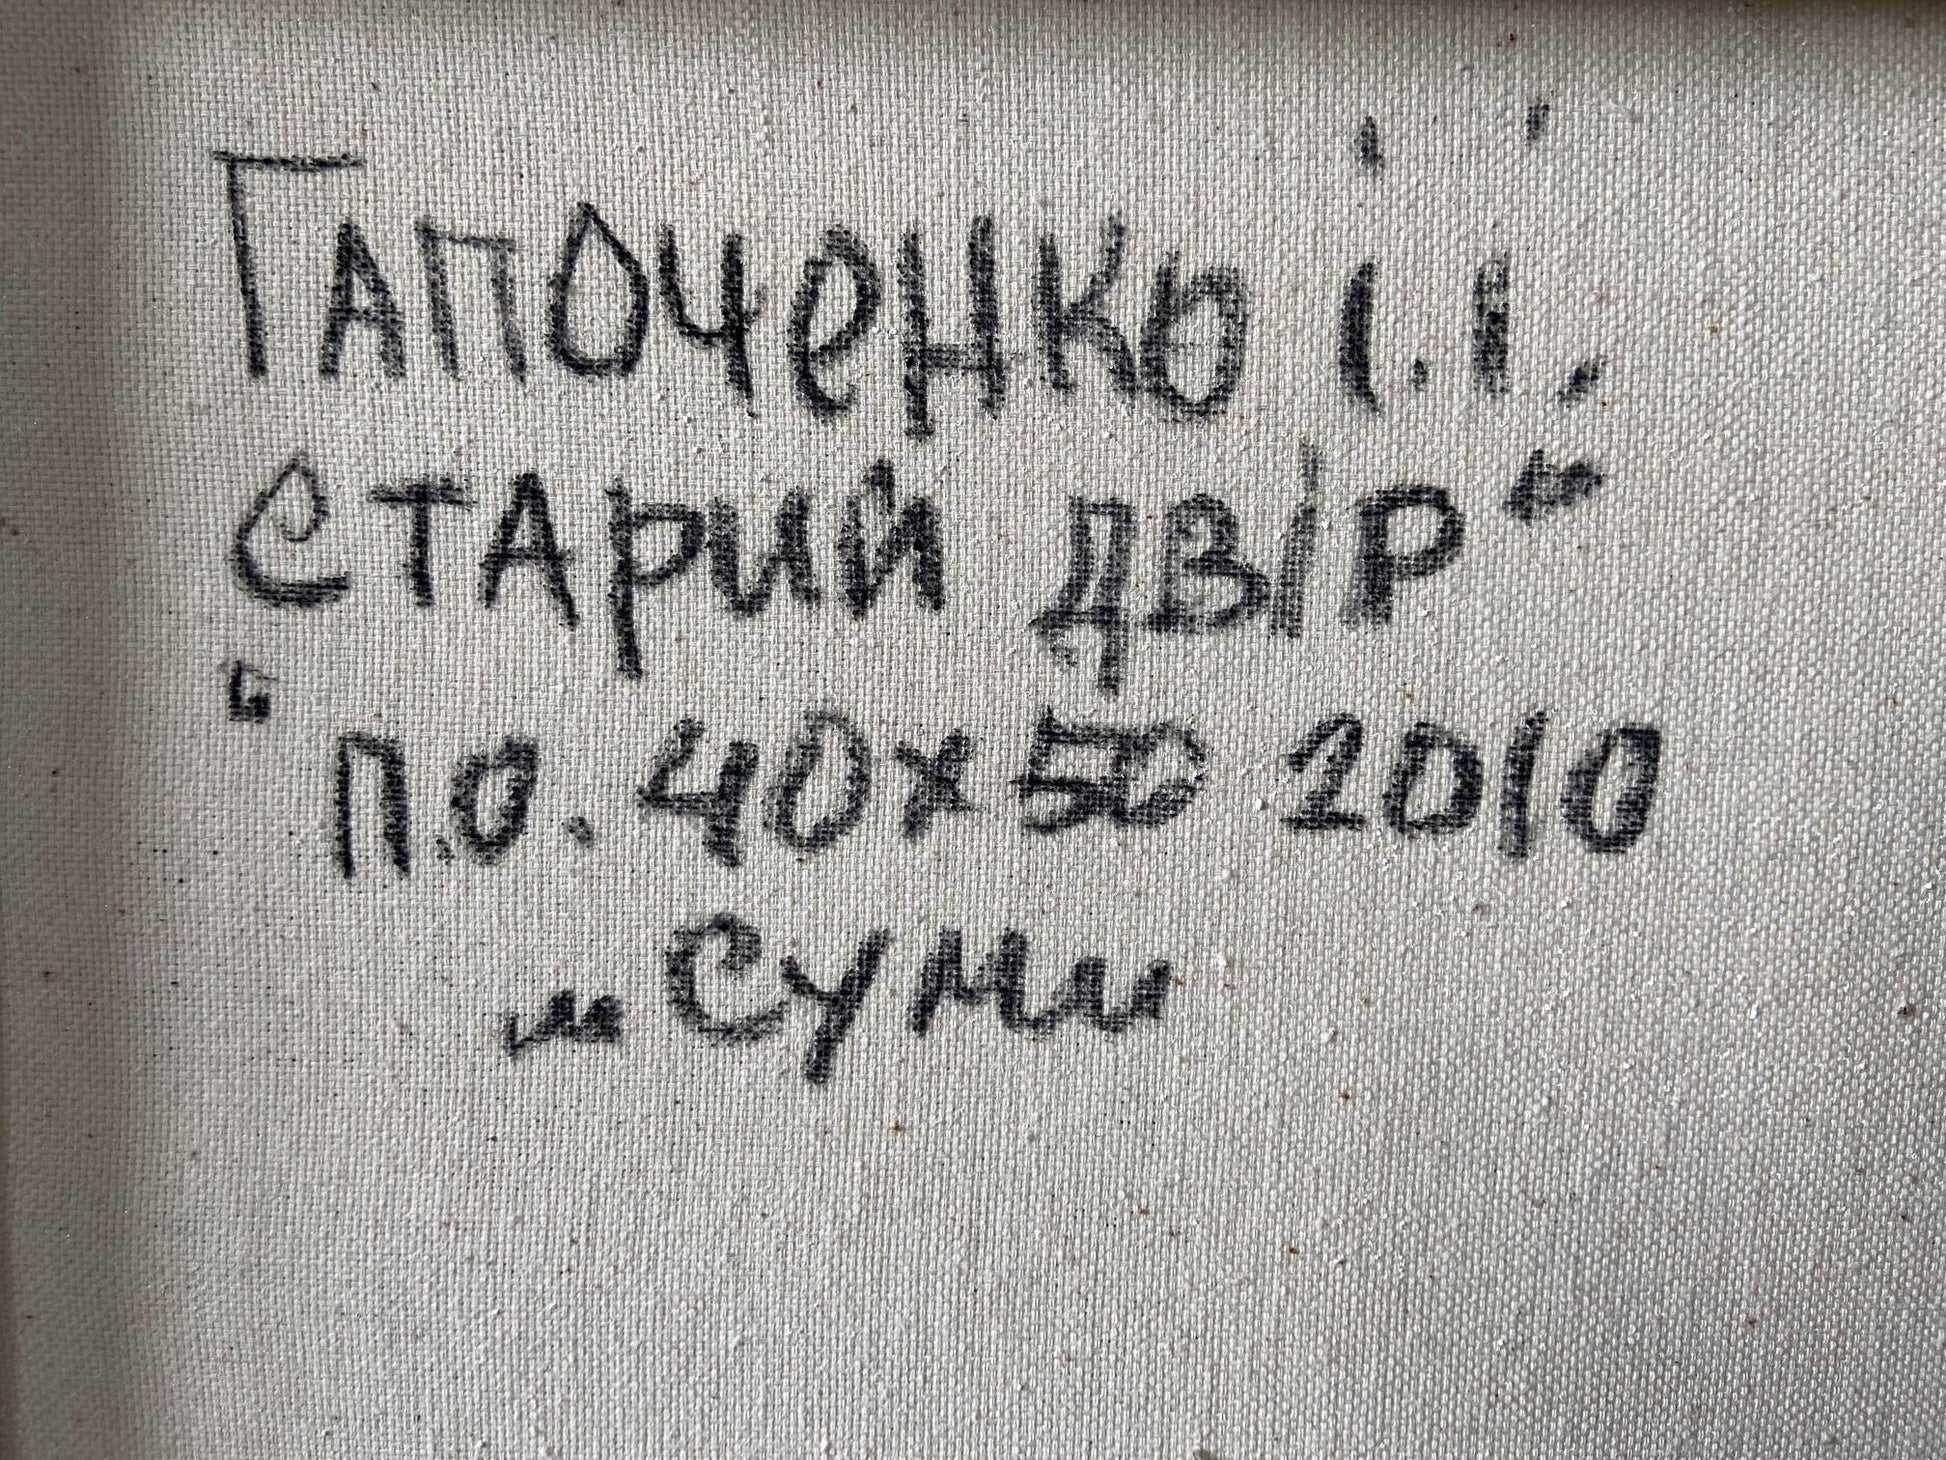 Гапоченко І.І.
Старий двір"
" п.о. 40х50 2010
„ Суми